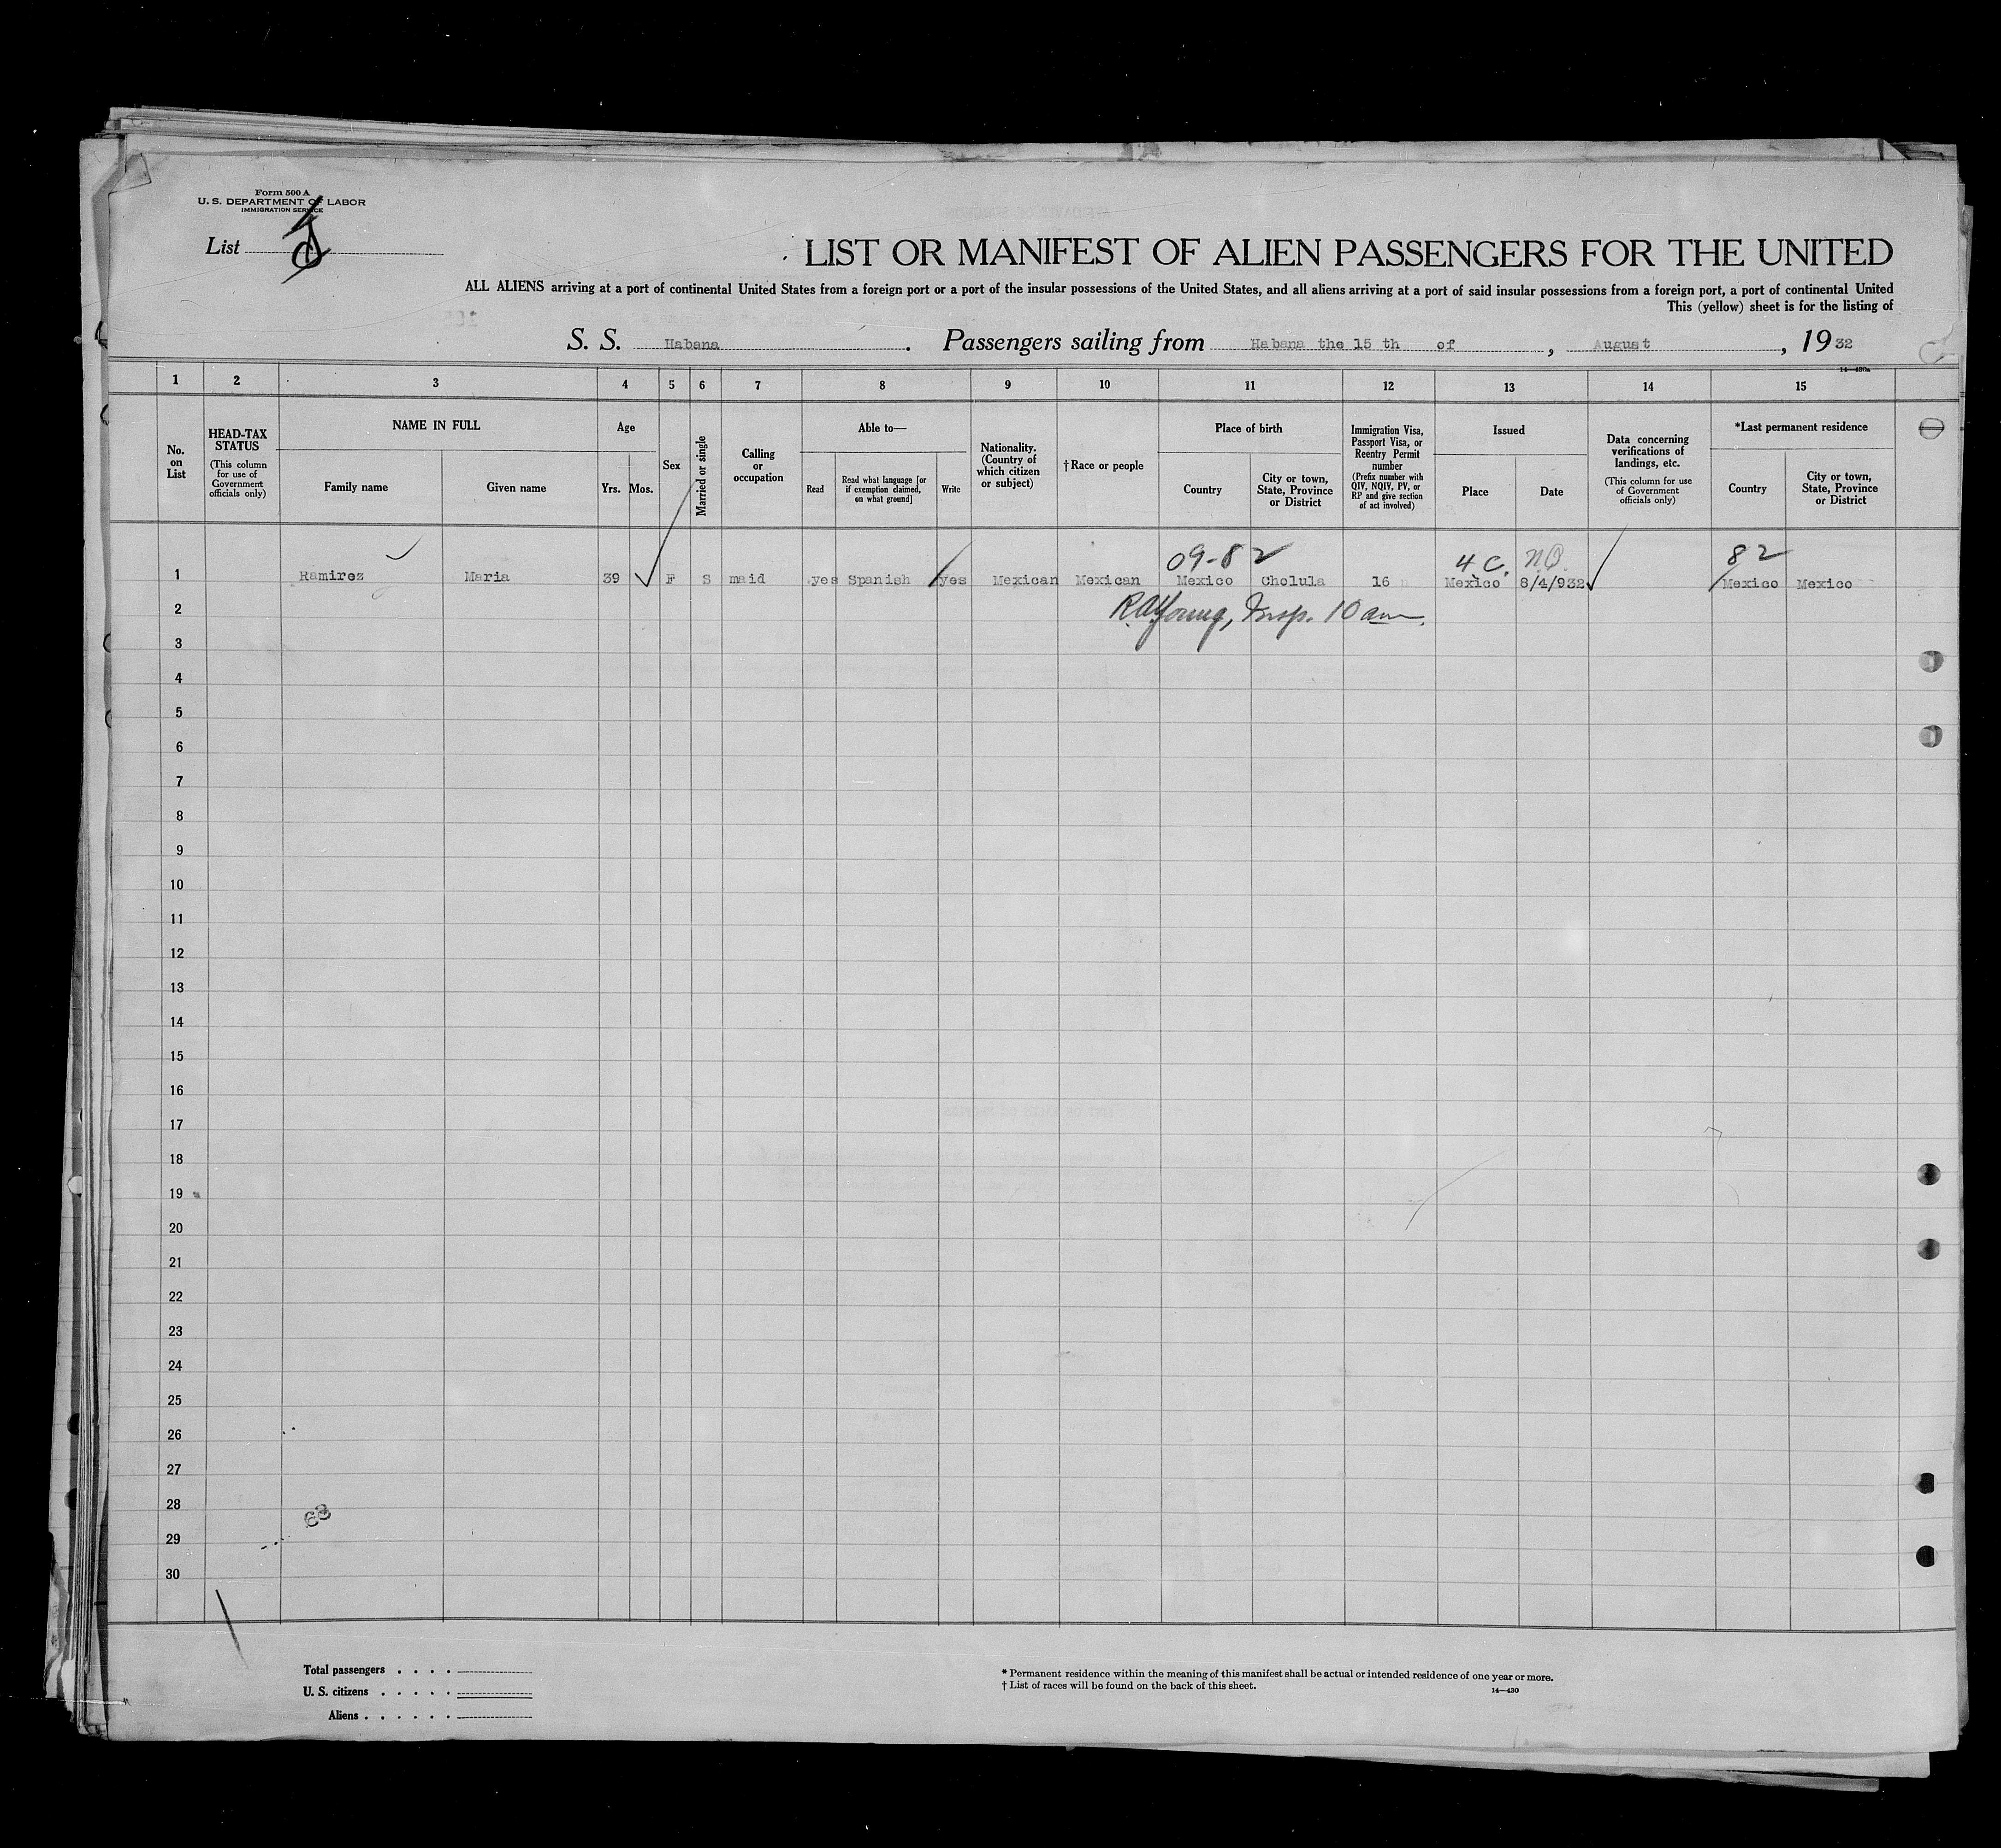 Form 500 A
U. S. DEPARTMENT OF LABOR
IMMIGRATION SERVICE
List
LIST OR MANIFEST OF ALIEN PASSENGERS FOR THE UNITED
ALL ALIENS arriving at a port of continental United States from a foreign port or a port of the insular possessions of the United States, and all aliens arriving at a port of said insular possessions from a foreign port, a port of continental United
This (yellow) sheet is for the listing of
S. S. Habana . Passengers sailing from Habana the 15 th of , August , 19 32
14—430a
1 2 3 4 5 6 7 8 9 10 11 12 13 14 15
No. on List
HEAD-TAX STATUS (This column for use of Government officials only)
NAME IN FULL
Family name
Given name
Age
Yrs. Mos.
Sex
Married or single
Calling or occupation
Able to—
Read
Read what language [or if exemption claimed, on what ground]
Write
Nationality. (Country of which citizen or subject)
†Race or people
Place of birth
Country
City or town, State, Province or District
Immigration Visa, Passport Visa, or Reentry Permit number (Prefix number with QIV, NQIV, PV, or RP and give section of act involved)
Issued
Place
Date
Data concerning verifications of landings, etc. (This column for use of Government officials only)
*Last permanent residence
Country
City or town, State, Province or District
09-82 4 C. N.Q. 82
1 Ramirez Maria 39 F S maid yes Spanish yes Mexican Mexican Mexico Cholula 16 Mexico 8/4/932 Mexico Mexico
2 R.A. Young, Insp. 10 am.
3
4
5
6
7
8
9
10
11
12
13
14
15
16
17
18
19
20
21
22
23
24
25
26
27
28
29
30
68
Total passengers . . . .
U. S. citizens . . . . .
Aliens . . . . . .
* Permanent residence within the meaning of this manifest shall be actual or intended residence of one year or more.
† List of races will be found on the back of this sheet.
14—430